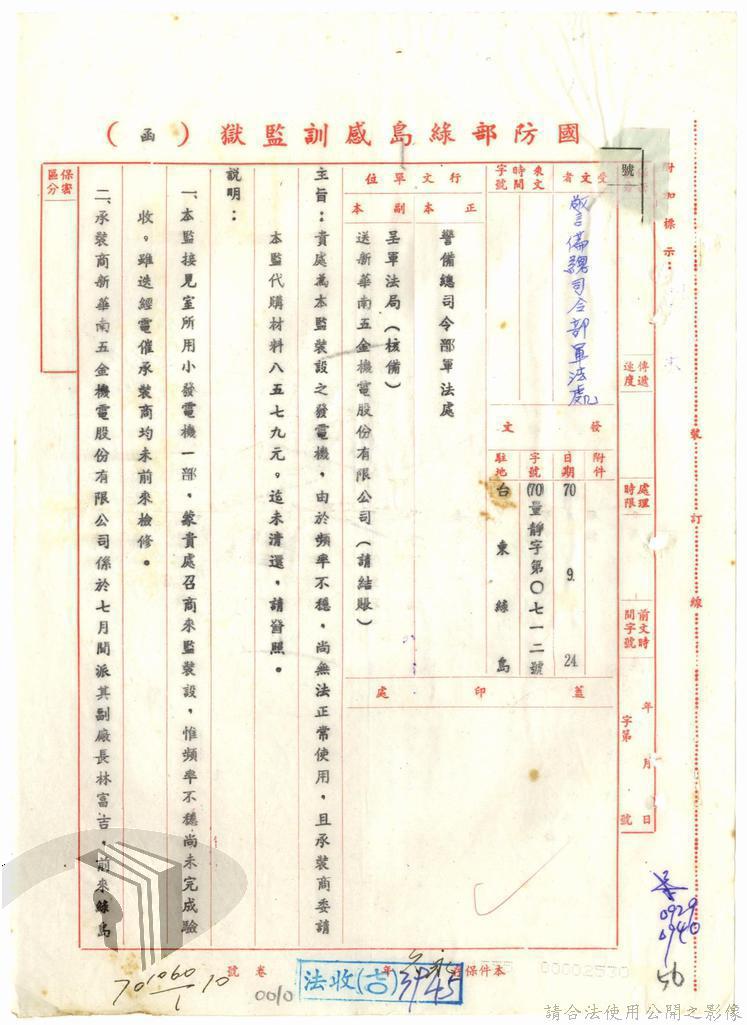 國防部綠島感訓監獄（函）
附加標示：
裝訂線
號
保密區分
傳遞速度
處理時限
前文時間字號
年月日
字第號
受文者
警備總司令部軍法處
來文時間字號
行文單位
正本
警備總司令部軍法處
副本
呈軍法局（核備）
送新華南五金機電股份有限公司（請結賬）
發文
附件
日期
70 9. 24
字號
(70)量靜字第〇七一二號
駐地
台東綠島
蓋印處
主旨：貴處為本監裝設之發電機，由於頻率不穩，尚無法正常使用，且承裝商委請
本監代購材料八五七九元。迄未清還，請詧照。
說明：
一、本監接見室所用小發電機一部，蒙貴處召商來監裝設，惟頻率不穩尚未完成驗
收。雖迭經電催承裝商均未前來檢修。
二、承裝商新華南五金機電股份有限公司係於七月間派其副廠長林富吉，前來綠島
0929
0940
本件保存年
00002530
法收(吉)
卷號
0010
請合法使用公開之影像